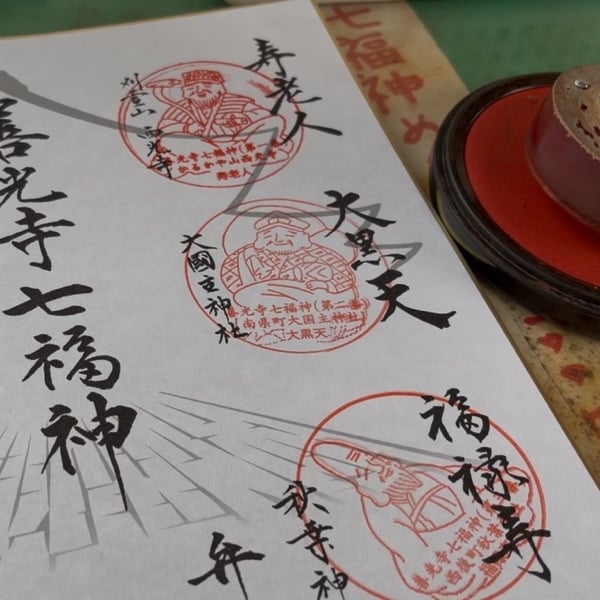 善光寺七福神
寿老人
刈萱山 西光寺
善光寺七福神(第一番
かるかや山西光寺
寿老人
大黒天
大國主神社
善光寺七福神(第二番
南県町大国主神社
大黒天
福禄寿
秋葉神
善光寺七福神(第
西後町秋葉
弁
七福神め